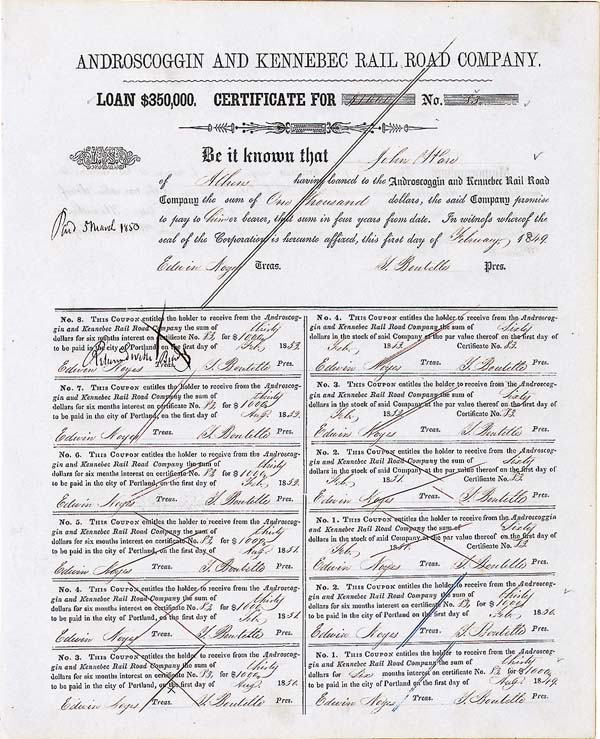 ANDROSCOGGIN AND KENNEBEC RAIL ROAD COMPANY.
LOAN $350,000. CERTIFICATE FOR $1000 No. 83.
Be it known that John Ware
of Athens having loaned to the Androscoggin and Kennebec Rail Road
Company the sum of One thousand dollars, the said Company promise
to pay to him or bearer, that sum in four years from date. In witness whereof the
seal of the Corporation is hereunto affixed, this first day of February, 1849.
Pard 5 March 1850
Edwin Noyes Treas. T. Boutelle Pres.
No. 8. THIS COUPON entitles the holder to receive from the Androscog-
gin and Kennebec Rail Road Company the sum of thirty
dollars for six months interest on certificate No. 83 for $1000
to be paid in the city of Portland on the first day of Feb, 1853.
Returned with
Edwin Noyes Treas. T. Boutelle Pres.
No. 7. THIS COUPON entitles the holder to receive from the Androscog-
gin and Kennebec Rail Road Company the sum of thirty
dollars for six months interest on certificate No. 83 for $1000
to be paid in the city of Portland, on the first day of Augt. 1852.
Edwin Noyes Treas. T. Boutelle Pres.
No. 6. THIS COUPON entitles the holder to receive from the Androscog-
gin and Kennebec Rail Road Company the sum of thirty
dollars for six months interest on certificate No. 83 for $1000
to be paid in the city of Portland, on the first day of Feb, 1852.
Edwin Noyes Treas. T. Boutelle Pres.
No. 5. THIS COUPON entitles the holder to receive from the Androscog-
gin and Kennebec Rail Road Company the sum of thirty
dollars for six months interest on certificate No. 83 for $1000
to be paid in the city of Portland, on the first day of Augt. 1851.
Edwin Noyes Treas. T. Boutelle Pres.
No. 4. THIS COUPON entitles the holder to receive from the Androscog-
gin and Kennebec Rail Road Company the sum of thirty
dollars for six months interest on certificate No. 83 for $1000
to be paid in the city of Portland, on the first day of Feb, 1851.
Edwin Noyes Treas. T. Boutelle Pres.
No. 3. THIS COUPON entitles the holder to receive from the Androscog-
gin and Kennebec Rail Road Company the sum of thirty
dollars for six months interest on certificate No. 83, for $1000
to be paid in the city of Portland, on the first day of Augt. 1850.
Edwin Noyes Treas. T. Boutelle Pres.
No. 4. THIS COUPON entitles the holder to receive from the Androscog-
gin and Kennebec Rail Road Company, the sum of Sixty
dollars in the stock of said Company at the par value thereof on the first day of
Feb, 1853. Certificate No. 83.
Edwin Noyes Treas. T. Boutelle Pres.
No. 3. THIS COUPON entitles the holder to receive from the Androscog-
gin and Kennebec Rail Road Company, the sum of Sixty
dollars in the stock of said Company at the par value thereof on the first day of
Feb, 1852. Certificate No. 83
Edwin Noyes Treas. T. Boutelle Pres.
No. 2. THIS COUPON entitles the holder to receive from the Androscog-
gin and Kennebec Rail Road Company the sum of Sixty
dollars in the stock of said Company at the par value thereof on the first day of
Feb, 1851. Certificate No. 83.
Edwin Noyes Treas. T. Boutelle Pres.
No. 1. THIS COUPON entitles the holder to receive from the Androscoggin
and Kennebec Rail Road Company the sum of Sixty
dollars in the stock of said Company at the par value thereof on the first day of
Feb, Certificate No. 83
Edwin Noyes Treas. T. Boutelle Pres.
No. 2. THIS COUPON entitles the holder to receive from the Androscog-
gin and Kennebec Rail Road Company the sum of thirty
dollars for six months interest on certificate No. 83, for $1000
to be paid in the city of Portland on the first day of Feb, 1850.
Edwin Noyes Treas. T. Boutelle Pres.
No. 1. THIS COUPON entitles the holder to receive from the Androscog-
gin and Kennebec Rail Road Company the sum of thirty
dollars for Six months interest on certificate No. 83 for $1000
to be paid in the city of Portland, on the first day of Augt. 1849.
Edwin Noyes Treas. T. Boutelle Pres.